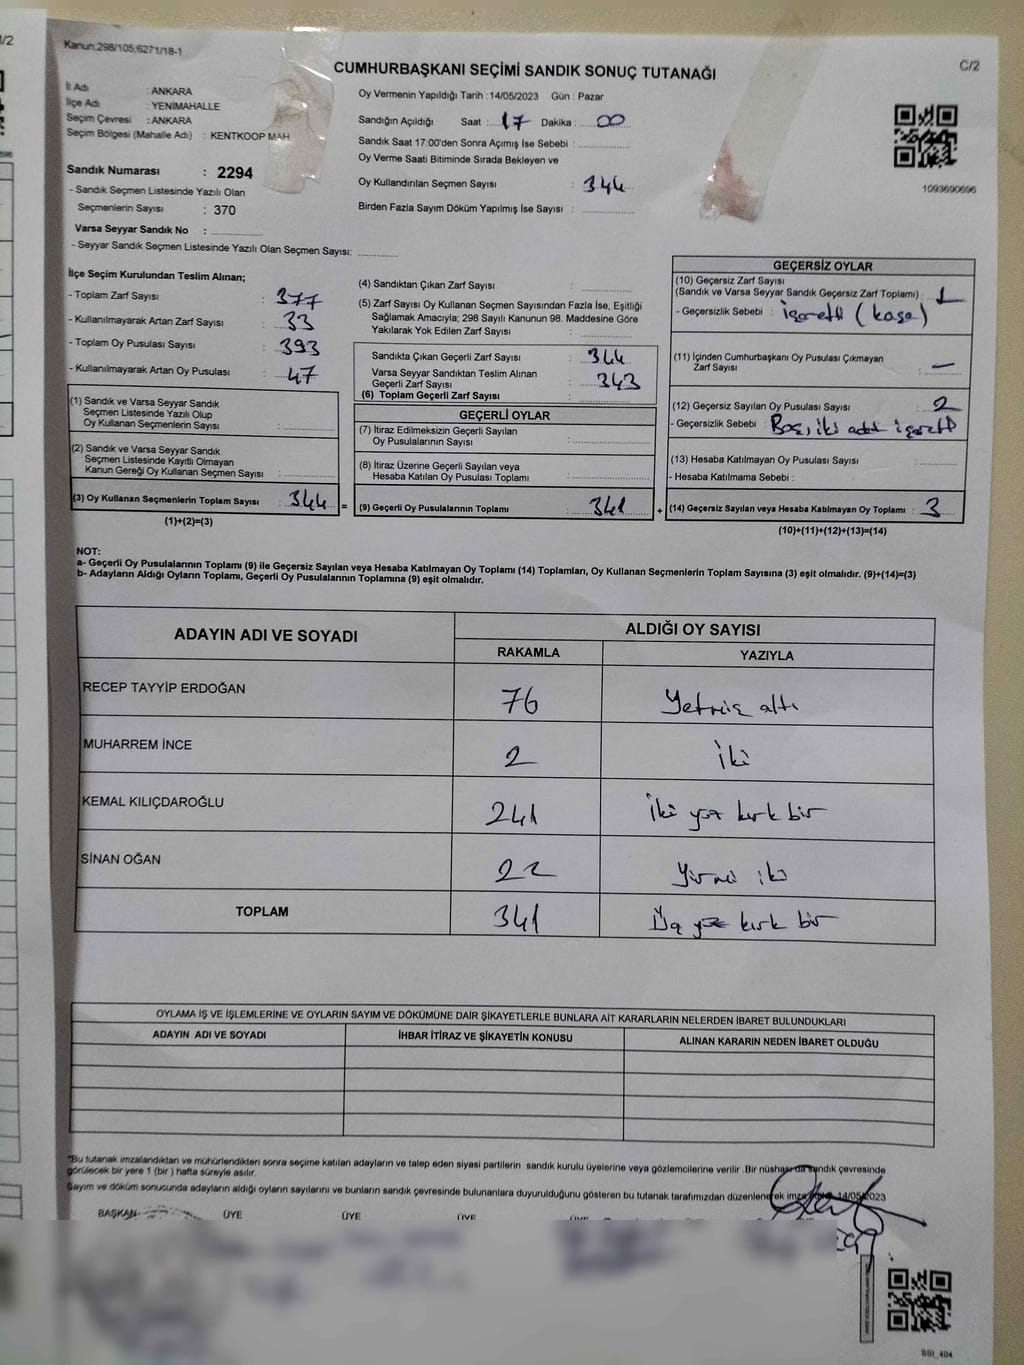 Kanun:298/105;6271/18-1
C/2
CUMHURBAŞKANI SEÇİMİ SANDIK SONUÇ TUTANAĞI
İl Adı : ANKARA
İlçe Adı : YENİMAHALLE
Seçim Çevresi : ANKARA
Seçim Bölgesi (Mahalle Adı) : KENTKOOP MAH
Sandık Numarası : 2294
- Sandık Seçmen Listesinde Yazılı Olan
Seçmenlerin Sayısı : 370
Varsa Seyyar Sandık No :
- Seyyar Sandık Seçmen Listesinde Yazılı Olan Seçmen Sayısı:
Oy Vermenin Yapıldığı Tarih : 14/05/2023 Gün : Pazar
Sandığın Açıldığı Saat : 17 Dakika : 00
Sandık Saat 17:00'den Sonra Açımış İse Sebebi :
Oy Verme Saati Bitiminde Sırada Bekleyen ve
Oy Kullandırılan Seçmen Sayısı : 344
Birden Fazla Sayım Döküm Yapılmış İse Sayısı :
1093690696
İlçe Seçim Kurulundan Teslim Alınan;
- Toplam Zarf Sayısı : 377
- Kullanılmayarak Artan Zarf Sayısı : 33
- Toplam Oy Pusulası Sayısı : 393
- Kullanılmayarak Artan Oy Pusulası : 47
(1) Sandık ve Varsa Seyyar Sandık
Seçmen Listesinde Yazılı Olup
Oy Kullanan Seçmenlerin Sayısı :
(2) Sandık ve Varsa Seyyar Sandık
Seçmen Listesinde Kayıtlı Olmayan
Kanun Gereği Oy Kullanan Seçmen Sayısı :
(3) Oy Kullanan Seçmenlerin Toplam Sayısı : 344 =
(1)+(2)=(3)
(4) Sandıktan Çıkan Zarf Sayısı :
(5) Zarf Sayısı Oy Kullanan Seçmen Sayısından Fazla İse, Eşitliği
Sağlamak Amacıyla; 298 Sayılı Kanunun 98. Maddesine Göre
Yakılarak Yok Edilen Zarf Sayısı :
Sandıkta Çıkan Geçerli Zarf Sayısı : 344
Varsa Seyyar Sandıktan Teslim Alınan
Geçerli Zarf Sayısı : 343
(6) Toplam Geçerli Zarf Sayısı :
GEÇERLİ OYLAR
(7) İtiraz Edilmeksizin Geçerli Sayılan
Oy Pusulalarının Sayısı :
(8) İtiraz Üzerine Geçerli Sayılan veya
Hesaba Katılan Oy Pusulası Toplamı :
(9) Geçerli Oy Pusulalarının Toplamı : 341 +
GEÇERSİZ OYLAR
(10) Geçersiz Zarf Sayısı
(Sandık ve Varsa Seyyar Sandık Geçersiz Zarf Toplamı) : 1
- Geçersizlik Sebebi : İşaretli (kaşe)
(11) İçinden Cumhurbaşkanı Oy Pusulası Çıkmayan
Zarf Sayısı : —
(12) Geçersiz Sayılan Oy Pusulası Sayısı : 2
- Geçersizlik Sebebi : Boş, iki adet işaretli
(13) Hesaba Katılmayan Oy Pusulası Sayısı :
- Hesaba Katılmama Sebebi :
(14) Geçersiz Sayılan veya Hesaba Katılmayan Oy Toplamı : 3
(10)+(11)+(12)+(13)=(14)
NOT:
a- Geçerli Oy Pusulalarının Toplamı (9) ile Geçersiz Sayılan veya Hesaba Katılmayan Oy Toplamı (14) Toplamları, Oy Kullanan Seçmenlerin Toplam Sayısına (3) eşit olmalıdır. (9)+(14)=(3)
b- Adayların Aldığı Oyların Toplamı, Geçerli Oy Pusulalarının Toplamına (9) eşit olmalıdır.
ADAYIN ADI VE SOYADI ALDIĞI OY SAYISI
RAKAMLA YAZIYLA
RECEP TAYYİP ERDOĞAN 76 Yetmiş altı
MUHARREM İNCE 2 İki
KEMAL KILIÇDAROĞLU 241 İki yüz kırk bir
SİNAN OĞAN 22 Yirmi iki
TOPLAM 341 Üç yüz kırk bir
OYLAMA İŞ VE İŞLEMLERİNE VE OYLARIN SAYIM VE DÖKÜMÜNE DAİR ŞİKAYETLERLE BUNLARA AİT KARARLARIN NELERDEN İBARET BULUNDUKLARI
ADAYIN ADI VE SOYADI İHBAR İTİRAZ VE ŞİKAYETİN KONUSU ALINAN KARARIN NEDEN İBARET OLDUĞU
*Bu tutanak imzalandıktan ve mühürlendikten sonra seçime katılan adayların ve talep eden siyasi partilerin sandık kurulu üyelerine veya gözlemcilerine verilir .Bir nüshası da sandık çevresinde
görülecek bir yere 1 (bir ) hafta süreyle asılır.
Sayım ve döküm sonucunda adayların aldığı oyların sayılarını ve bunların sandık çevresinde bulunanlara duyurulduğunu gösteren bu tutanak tarafımızdan düzenlenerek imza 14/05/2023
BAŞKAN ÜYE ÜYE ÜYE ÜYE
SSt_404